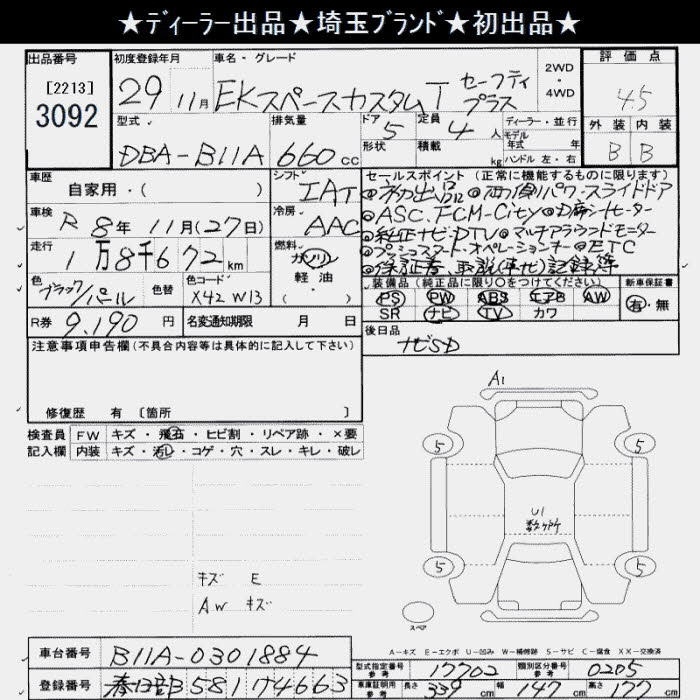 ★ディーラー出品★埼玉ブランド★初出品★
出品番号
[2213]
3092
初度登録年月
29 11月
車名・グレード
EKスペースカスタムT セーフティ
プラス
2WD
・
4WD
評価点
4.5
外装 内装
B B
型式
DBA-B11A
排気量
660cc
ドア 5
形状
定員 4人
積載 kg
ディーラー・並行
モデル
年式 年
ハンドル 左・右
車歴
自家用・( )
シフト
IAT
車検
R 8年 11月(27日)
冷房
AAC
走行
1万8千672km
燃料
ガソリン
軽・油
・
色
ブラックパール
色替
色コード
X42 W13
R券 9,190円
名変通知期限 月 日
セールスポイント (正常に機能するものに限ります)
◎初出品 ◎両側パワースライドドア
◎ASC.FCM-City ◎D席シートヒーター
◎純正ナビ.DTV ◎マルチアラウンドモニター
◎プッシュスタート・オペレーションキー ◎ETC
◎保証書、取説(車ナビ)記録簿
装備品 (純正品に限り○をつけてください)
PS PW ABS エアB AW
SR ナビ TV カワ
新車保証書
有・無
後日品
ナビSD
注意事項申告欄(不具合内容等は具体的に記入して下さい)
修復歴 有 [箇所 ]
検査員
記入欄
FW キズ・飛石・ヒビ割・リペア跡・×要
内装 キズ・汚レ・コゲ・穴・スレ・キレ・破レ
キズ E
AW キズ
A1
5
5
U1
数ヶ所
5
5
スペア
A-キズ E-エクボ U-凹み W-補修跡 S-サビ C-腐食 XX-交換済
車台番号 B11A-0301884
登録番号 春日部 581 ち 4663
型式指定番号
参考
17702
類別区分番号
参考
0205
車庫証明用
参考
長さ 339cm 幅 147cm 高さ 177cm